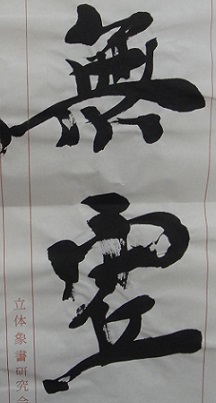 無
立体象書研究会